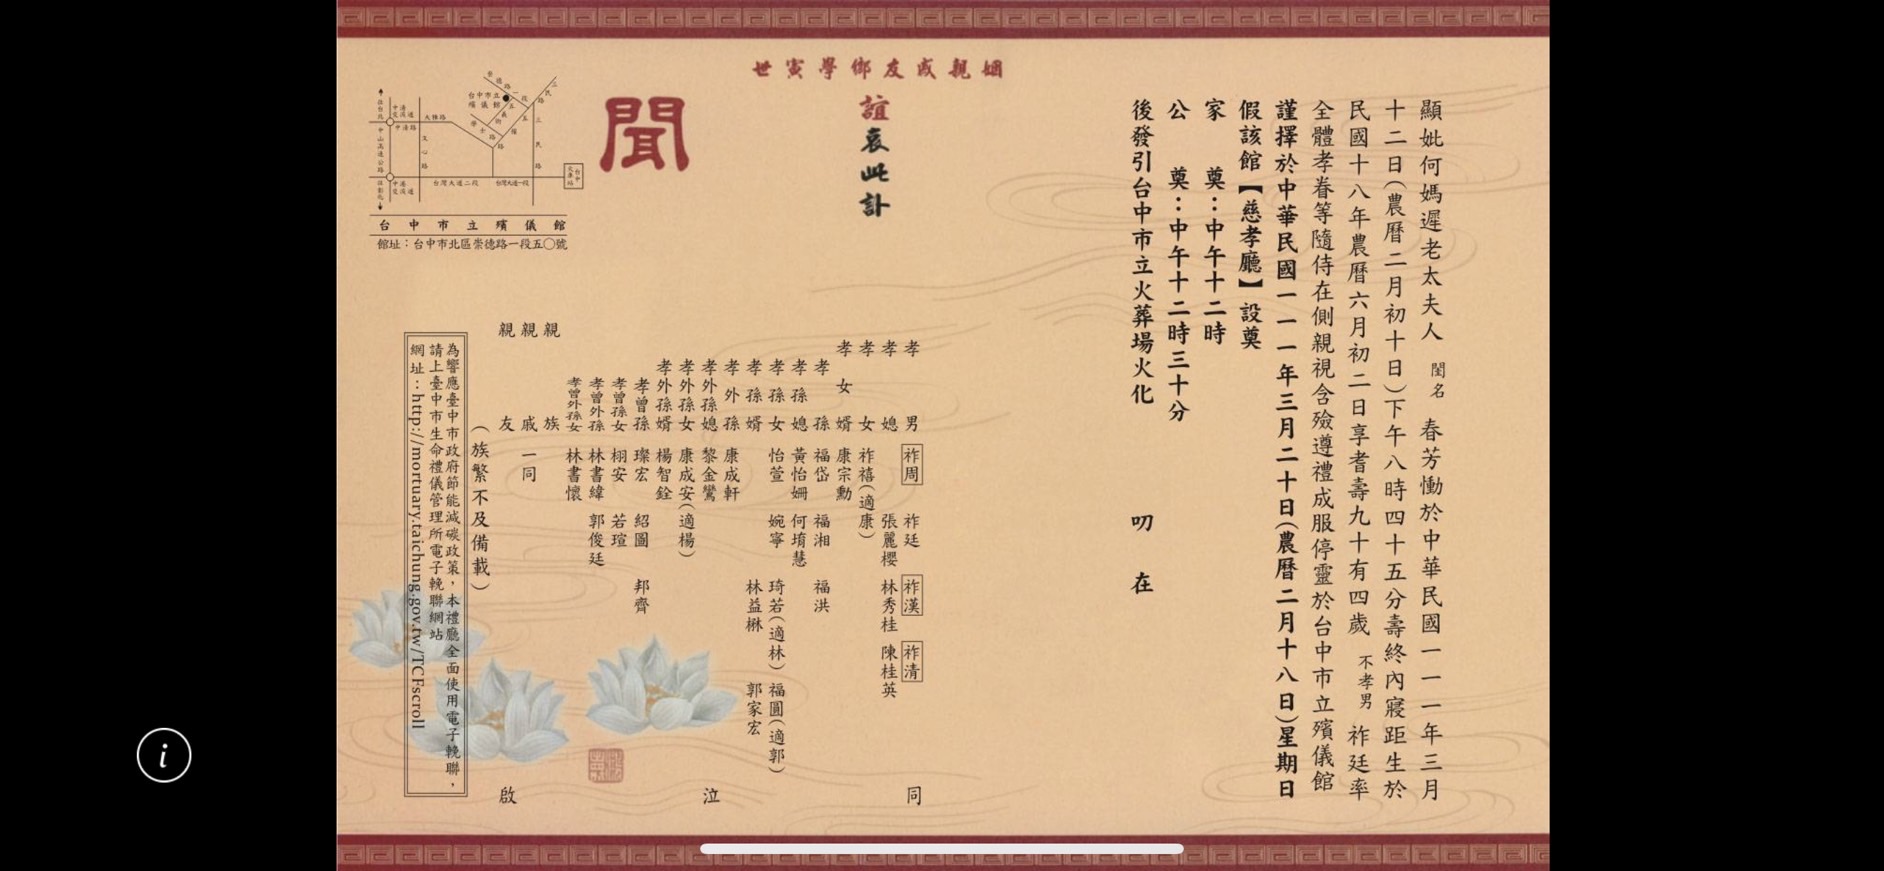 顯妣何媽遲老太夫人 閨名 春芳慟於中華民國一一一年三月
十二日(農曆二月初十日)下午八時四十五分壽終內寢距生於
民國十八年農曆六月初二日享耆壽九十有四歲 不孝男 祚廷率
全體孝眷等隨侍在側親視含殮遵禮成服停靈於台中市立殯儀館
謹擇於中華民國一一一年三月二十日(農曆二月十八日)星期日
假該館【慈孝廳】設奠
家 奠:中午十二時
公 奠:中午十二時三十分
後發引台中市立火葬場火化
叨 在
姻親戚友鄉學寅世
誼哀此訃
聞
孝 男 祚周 祚廷 祚漢 祚清 同
孝 媳 張麗櫻 林秀桂 陳桂英
孝 女 祚禧(適康)
孝 女 婿 康宗勳
孝 孫 福岱 福湘 福洪
孝 孫 媳 黃怡姍 何堉慧
孝 孫 女 怡萱 婉寧 琦若(適林) 福圓(適郭)
孝 孫 婿 林益楙 郭家宏
孝 外 孫 康成軒
孝外孫媳 黎金鸞 泣
孝外孫女 康成安(適楊)
孝外孫婿 楊智銓
孝曾孫 璨宏 紹圖 邦齊
孝曾孫女 栩安 若瑄
孝曾外孫 林書緯 郭俊廷
孝曾外孫女 林書懷
親 族
親 戚 一同
親 友 啟
(族繁不及備載)
為響應臺中市政府節能減碳政策,本禮廳全面使用電子輓聯,
請上臺中市生命禮儀管理所電子輓聯網站
網址:http://mortuary.taichung.gov.tw/TCFscroll
往台北
中山高速公路
往彰化
中清交流道
中清路
大雅路
文心路
中港交流道
台灣大道二段
台灣大道一段
崇德路一段
台中市立殯儀館
五義街
學士路
五權路
三民路
三民路
台中火車站
台中市立殯儀館
館址:台中市北區崇德路一段五〇號
i